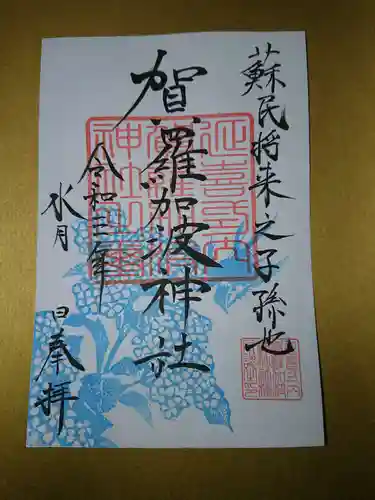 蘇民将来之子孫也
賀羅加波神社
令和三年
水月 日奉拝
延喜式内